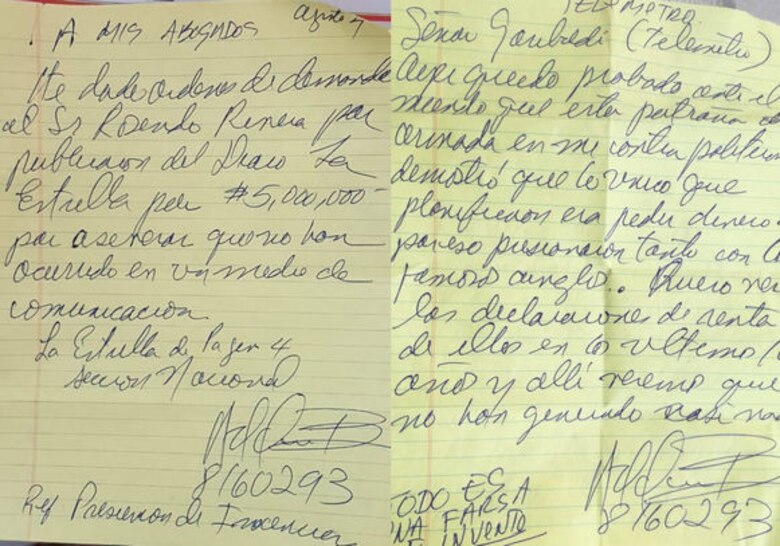 Agosto
. A MIS ABOGADOS
He dado ordenes de demanda
al Sr Rosendo Rivera por
publicacion del Diario La
Estrella por #5,000,000-
por aseverar que no han
ocurrido en un medio de
comunicacion
La Estrella de Pagen 4
seccion Nacional
8160293
Ref Presuncion de Inocencia
TELEMETRO
Señor Garibaldi (Telemetro)
Aqui quedo probado ante el
mundo que esta patraña
armada en mi contra politica
demostró que lo unico que
planificaron era pedir dinero
por eso presionaron tanto con
famoso arreglo.. Quiero ver
las declaraciones de renta
de ellos en los ultimos
años y alli veremos que
no han generado casi
8160293
TODO ES
UNA FARSA
INVENTO